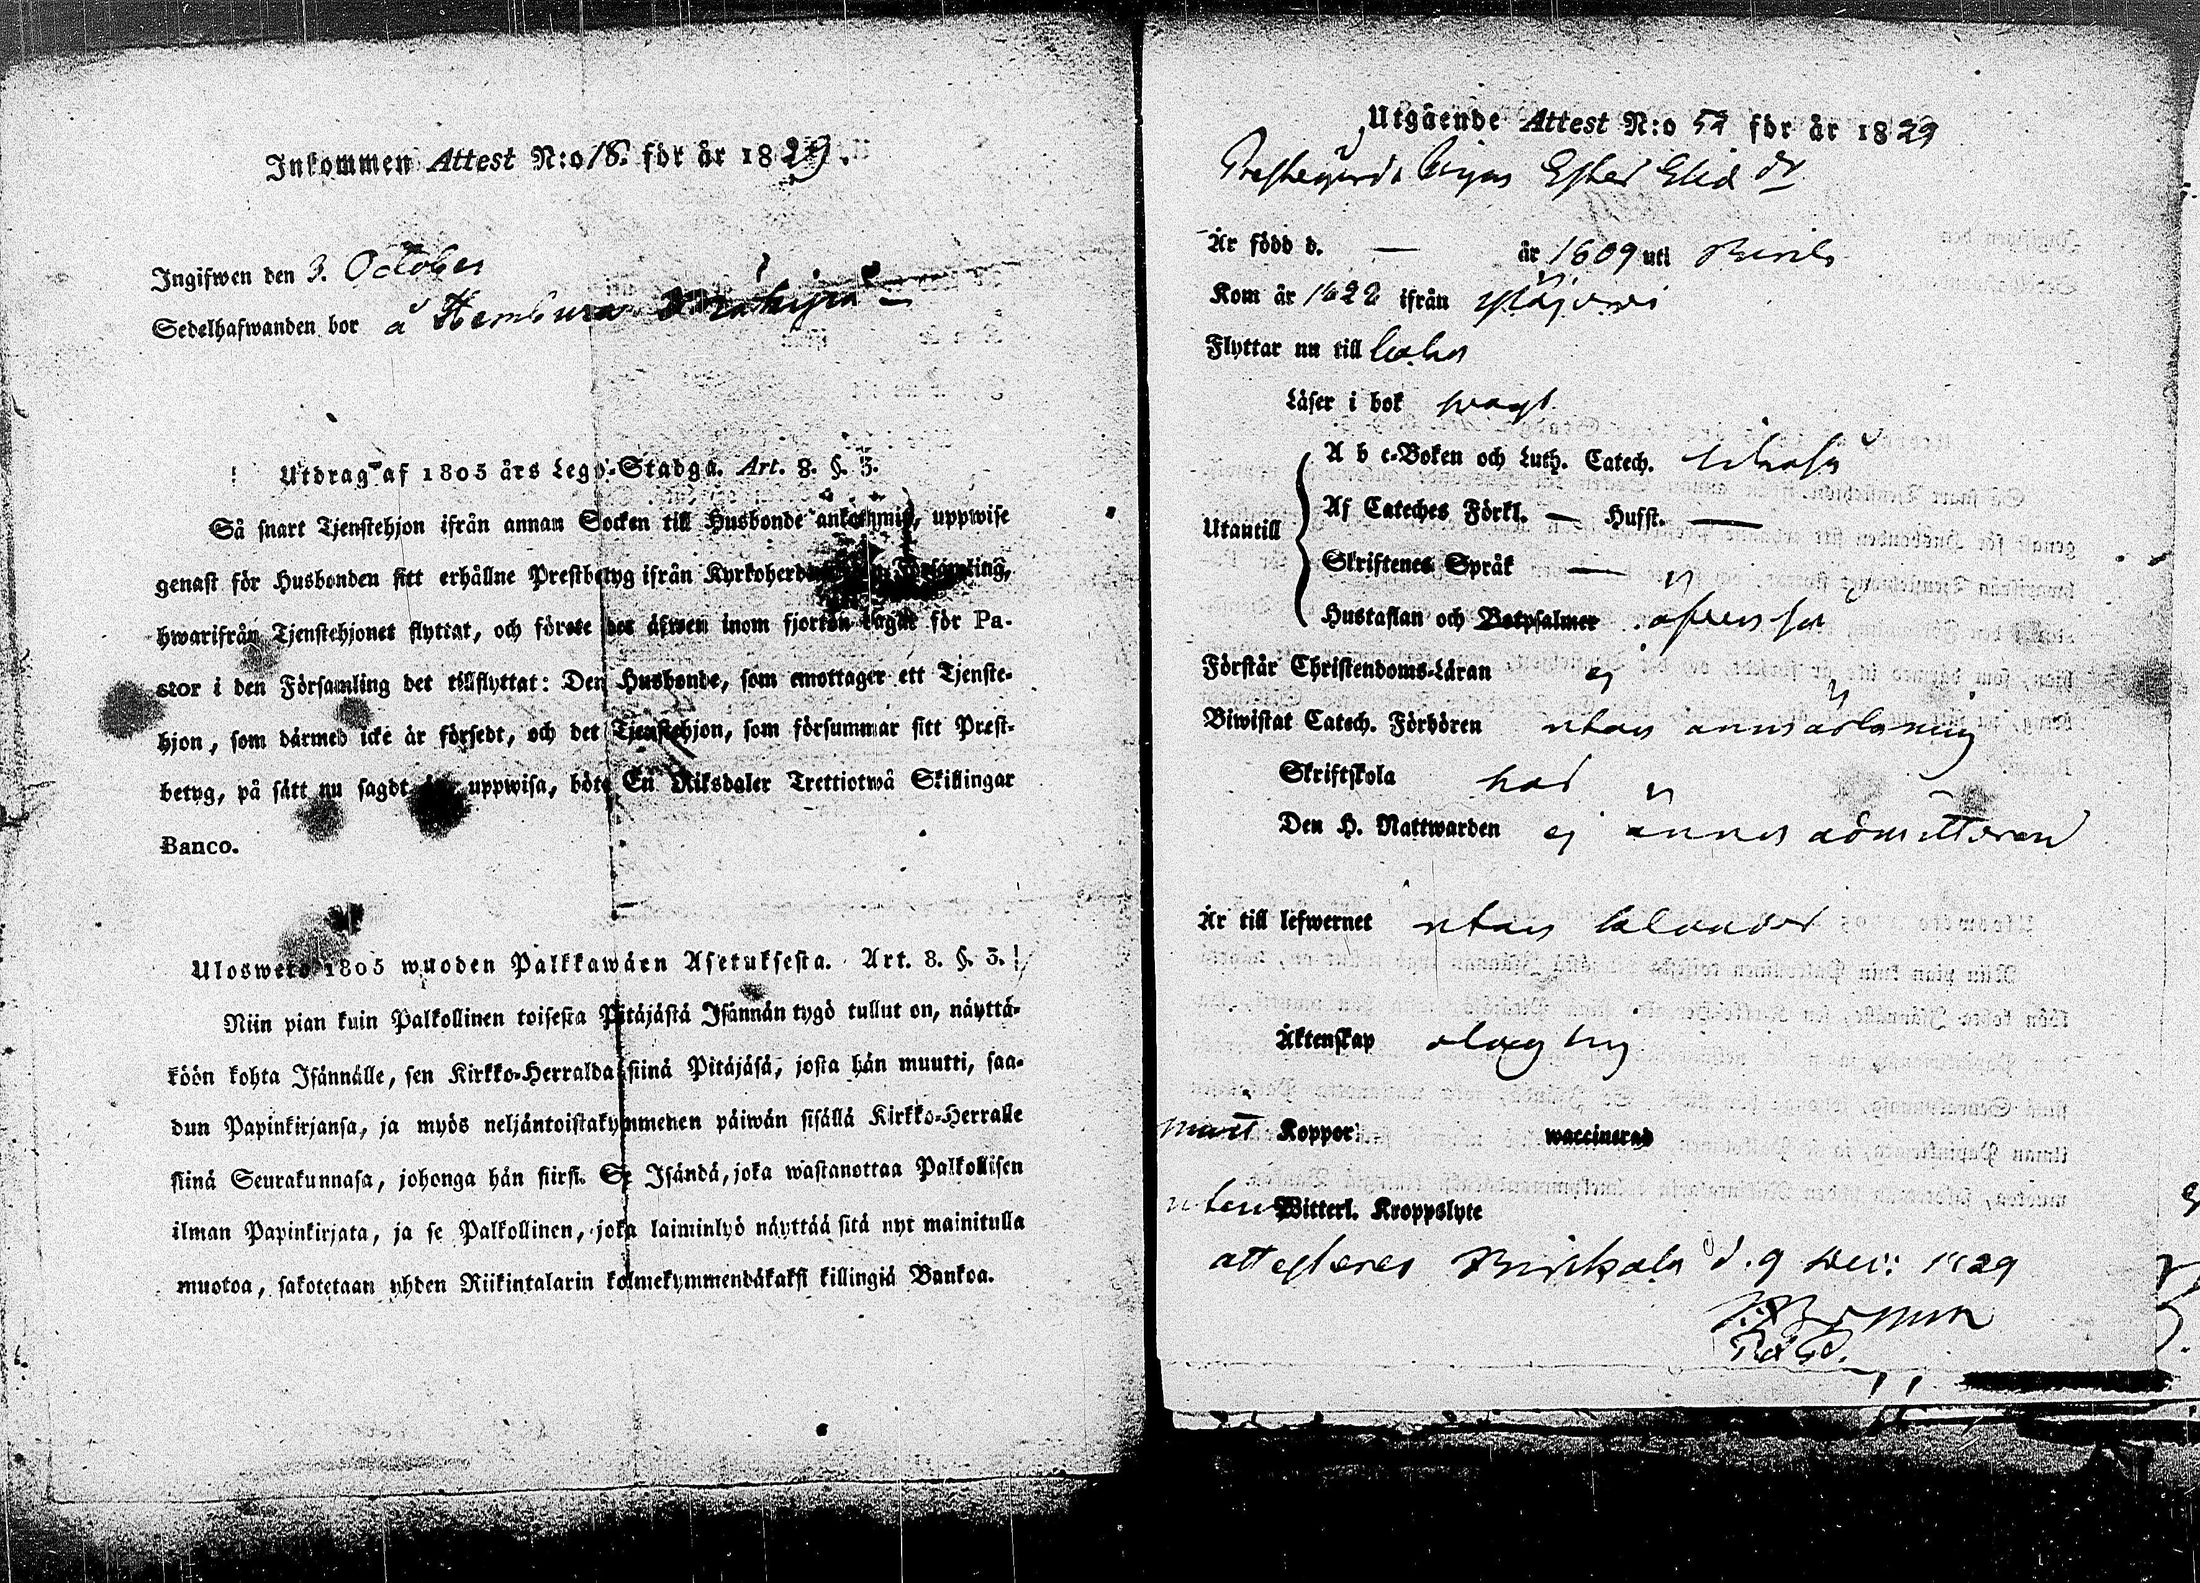 Inkommen Attest N:o 18. för år 1829.
Ingifwen den 3. October
Sedelhafwanden bor å
Utdrag af 1805 års Lego-Stadga. Art. 8. §. 3.
Så snart Tjenstehjon ifrån annan Socken till Husbonde ankommit, uppwise
genast för Husbonden sitt erhållne Prestbetyg ifrån Kyrkoherden
hwarifrån Tjenstehjonet flyttat, och förete det äfwen inom fjorton dagar för Pa-
stor i den Församling det tillflyttat: Den Husbonde, som emottager ett Tjenste-
hjon, som därmed icke är försedt, och det Tjenstehjon, som försummar sitt Prest-
betyg, på sätt nu sagdt är, uppwisa, böte En Riksdaler Trettiotwå Skillingar
Banco.
Ulosweto 1805 wuoden Palkkawäen Asetuksesta. Art. 8. §. 3.
Niin pian kuin Palkollinen toisesta Pitäjästä Isännän tygö tullut on, näyttä-
köön kohta Isännälle, sen Kirkko-Herralda siinä Pitäjäsä, josta hän muutti, saa-
dun Papinkirjansa, ja myös neljäntoistakymmenen päiwän sisällä Kirkko-Herralle
siinä Seurakunnasa, johonga hän siirsi. Se Isändä, joka wastanottaa Palkollisen
ilman Papinkirjata, ja se Palkollinen, joka laiminlyö näyttää sitä nyt mainitulla
muotoa, sakotetaan yhden Riikintalarin kolmekymmendäkaksi killingiä Bankoa.
Utgående Attest N:o 52 för år 1829
Prestegårds Pigan Ester Elid dr
År född d. — år 1809 uti
Kom år 1828 ifrån
Flyttar nu till
Läser i bok swagt
A b c-Boken och Luth. Catech.
Utantill
Af Cateches Förkl. — Hufft. —
Skriftenes Språk —
Hustaflan och Botpsalmer
Förstår Christendoms-Läran ej
Biwistat Catech. Förhören utan
Skriftskola har
Den H. Nattwarden ej ännu admitterad
År till lefwernet utan klander
Äktenskap oläg hug
haft Koppor waccinerad
utan Witterl. Kroppslyte
attesteras Birkala d. 9 Dec: 1829